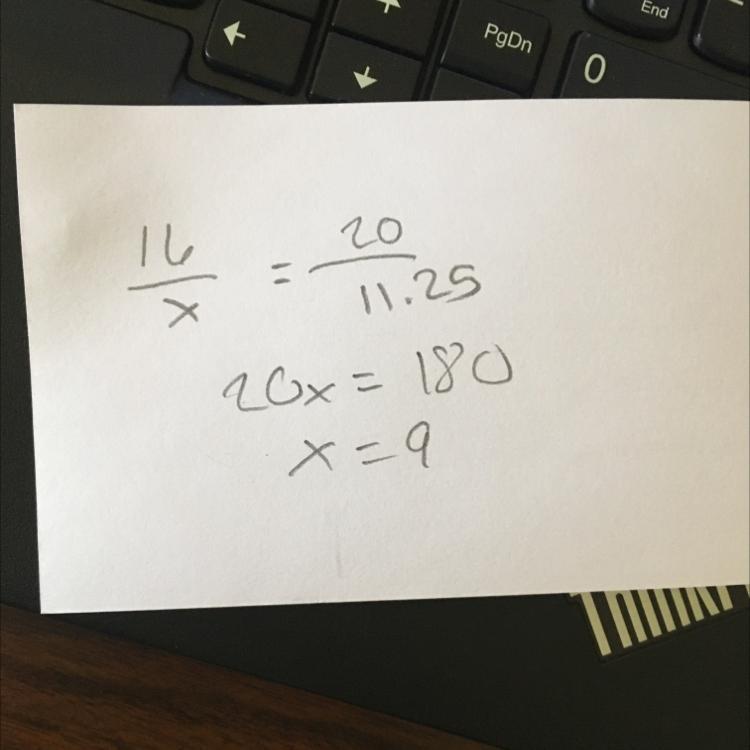 End
PgDn
← ↓ 0
16/x = 20/11.25
20x = 180
x = 9